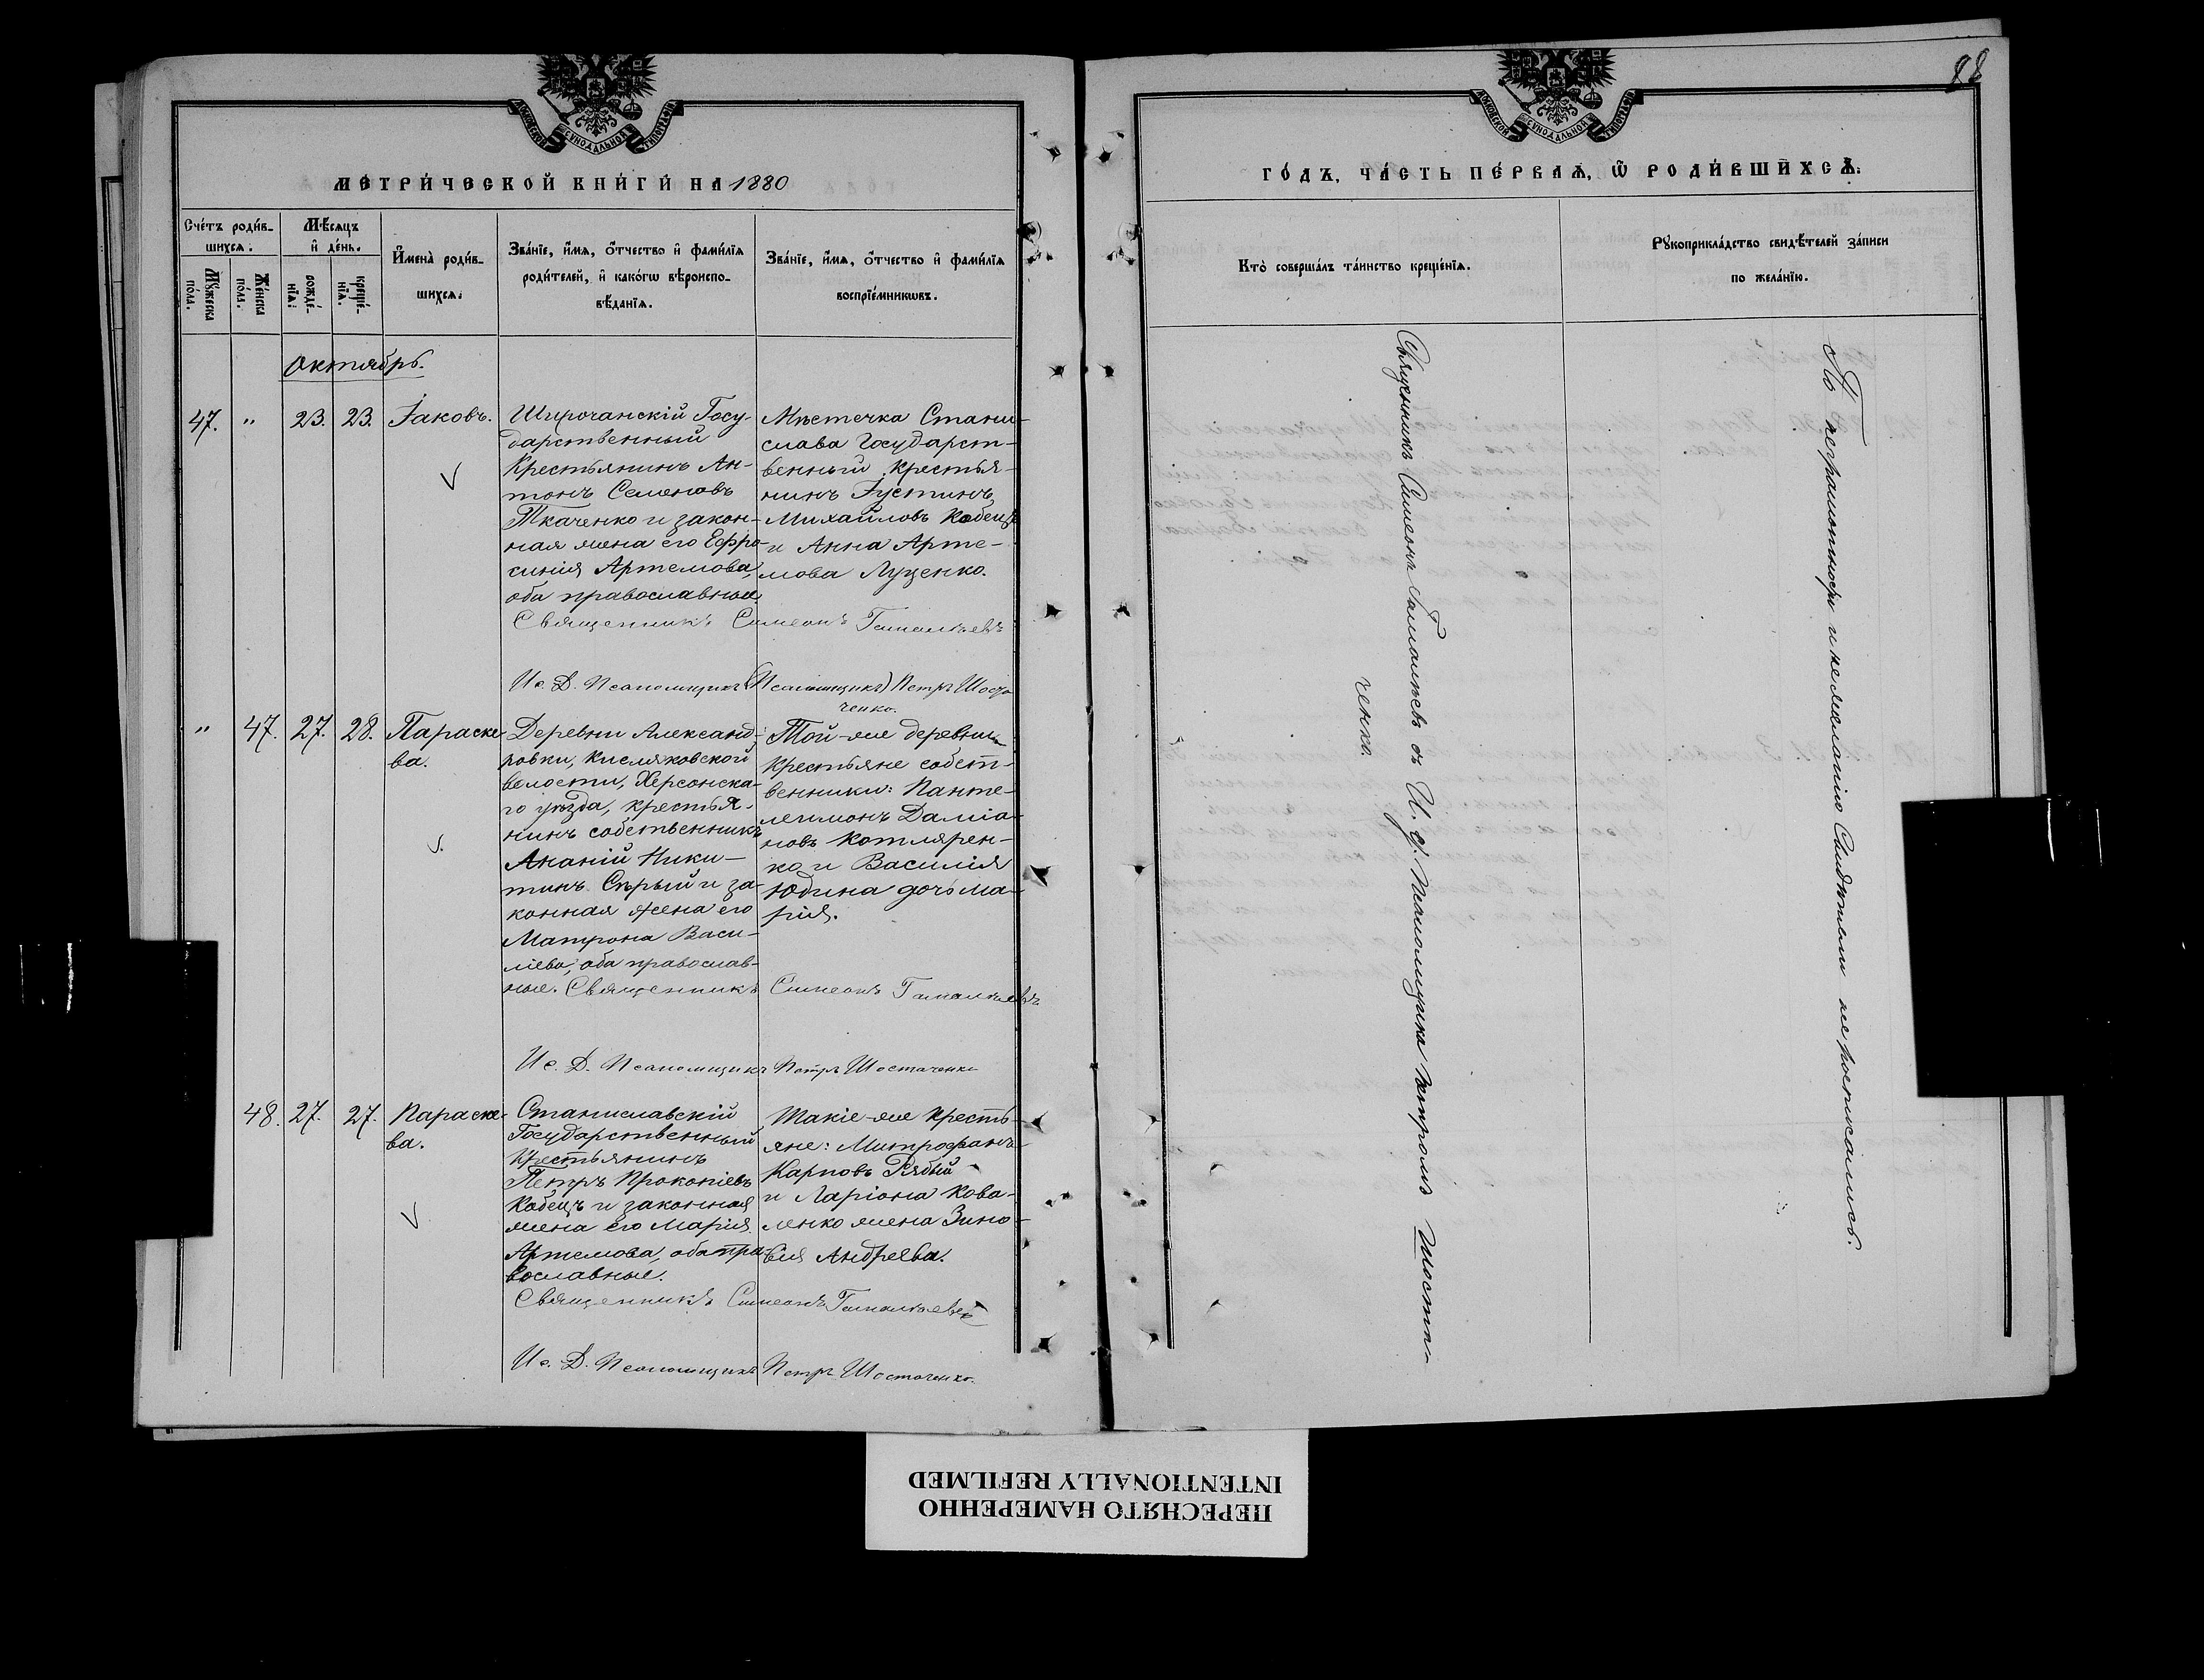 88
МОСКОВСКОЙ СѴНОДАЛЬНОЙ ТИПОГРАФІИ
МЕТРИ́ЧЕСКОЙ КНИ́ГИ НА 1880
Сче́тъ роди́в-
шихся:
Мꙋ́жеска
по́ла.
Же́нска
по́ла.
Мѣ́сяцъ
и҆ де́нь.
рожде́-
нїѧ:
креще́-
нїѧ.
И҆мена̀ роди́в-
шихсѧ:
Зва́нїе, и҆́мѧ, ѻ҆́тчество и҆ фами́лїѧ
роди́телей, и҆ како́гѡ вѣроиспо-
вѣ́данїѧ.
Зва́нїе, и҆́мѧ, ѻ҆́тчество и҆ фами́лїѧ
воспрїе́мникѡвъ.
Октябрь.
47. " 23. 23. Іаковъ.
Широчанскій Госу-
дарственный
Крестьянинъ Ан-
тонъ Семеновъ
Ткаченко и закон-
ная жена его Ефро-
синія Артемова,
оба православные
Мѣстечка Стани-
слава Государст-
венный крестья-
нинъ Іустинъ
Михайловъ Кобецъ
и Анна Арте-
мова Луценко.
Священникъ Симеонъ Гамалѣевъ
Ис. Д. Псаломщика (Псаломщикъ) Петръ Шоста
ченко.
" 47. 27. 28. Параске-
ва.
Деревни Александ-
ровки, Кисляковской
волости, Херсонска-
го уѣзда, крестья-
нинъ собственникъ
Ананій Ники-
тинъ Сѣрый и за-
конная жена его
Матрона Васи-
ліева, оба православ-
ные. Священникъ Симеонъ Гамалѣевъ
Той-же деревни
Крестьяне собст-
венники: Панте-
леимонъ Даміа-
новъ Котлярен-
ко и Василія
Юдина дочь Ма-
рія.
Ис. Д. Псаломщика Петръ Шостаченко
48. 27. 27. Параске-
ва.
Станиславскій
Государственный
Крестьянинъ
Петръ Прокопіевъ
Кобецъ и законная
жена его Марія
Артемова, оба пра-
вославные.
Такіе-же Кресть-
яне: Митрофанъ
Карповъ Рябый
и Ларіона Кова-
ленко жена Зино-
вія Андреева.
Священникъ Симеонъ Гамалѣевъ
Ис. Д. Псаломщика Петръ Шостаченко.
МОСКОВСКОЙ СѴНОДАЛЬНОЙ ТИПОГРАФІИ
ГО́ДЪ, ЧА́СТЬ ПЕ́РВАѦ, Ѿ РОДИ́ВШИХСѦ:
Кто̀ соверша́лъ та́инство креще́нїѧ.
Рꙋкоприкла́дство свидѣ́телей за́писи
по жела́нїю.
Священникъ Симеонъ Гамалѣевъ съ И. д. Псаломщика Петромъ Шоста-
ченко.
По неграмотности и нежеланію Свидѣтели не росписались.
ПЕРЕСНЯТО НАМЕРЕННО
INTENTIONALLY REFILMED